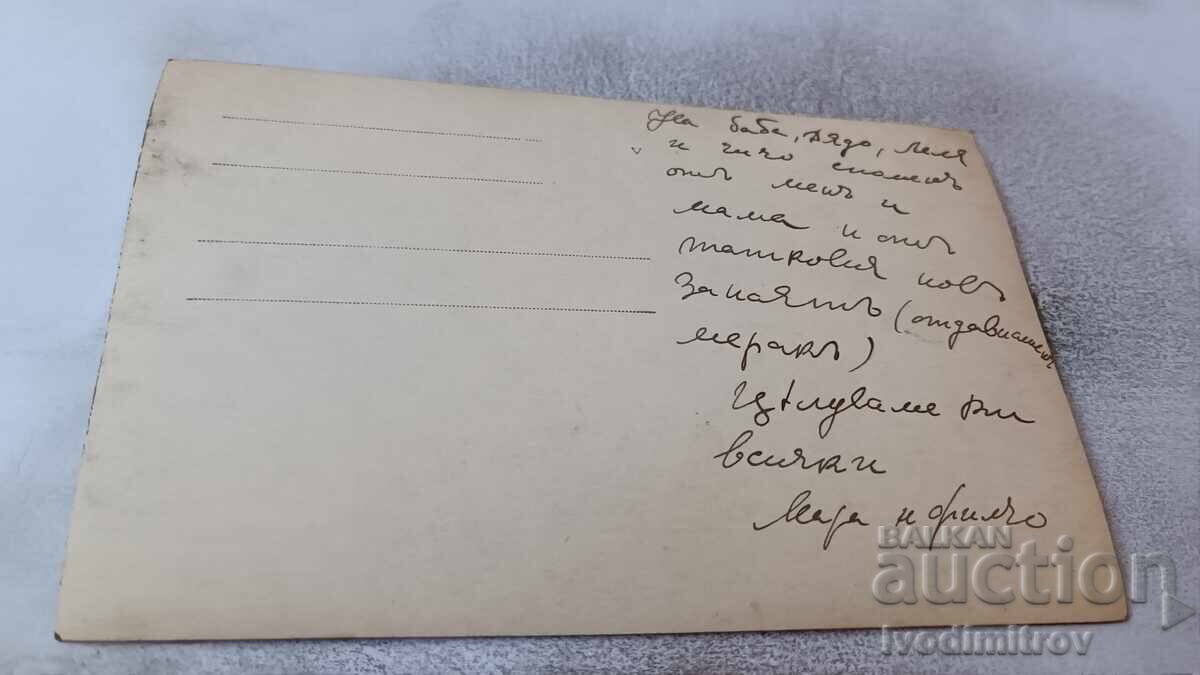 На баба, дядо, леля
и чичо споменъ
отъ менъ и
мама и отъ
татковия новъ
занаятъ (отдавнашенъ
меракъ)
Цѣлуваме ви
всички
Мара и Филчо
BALKAN
auction
Ivodimitrov